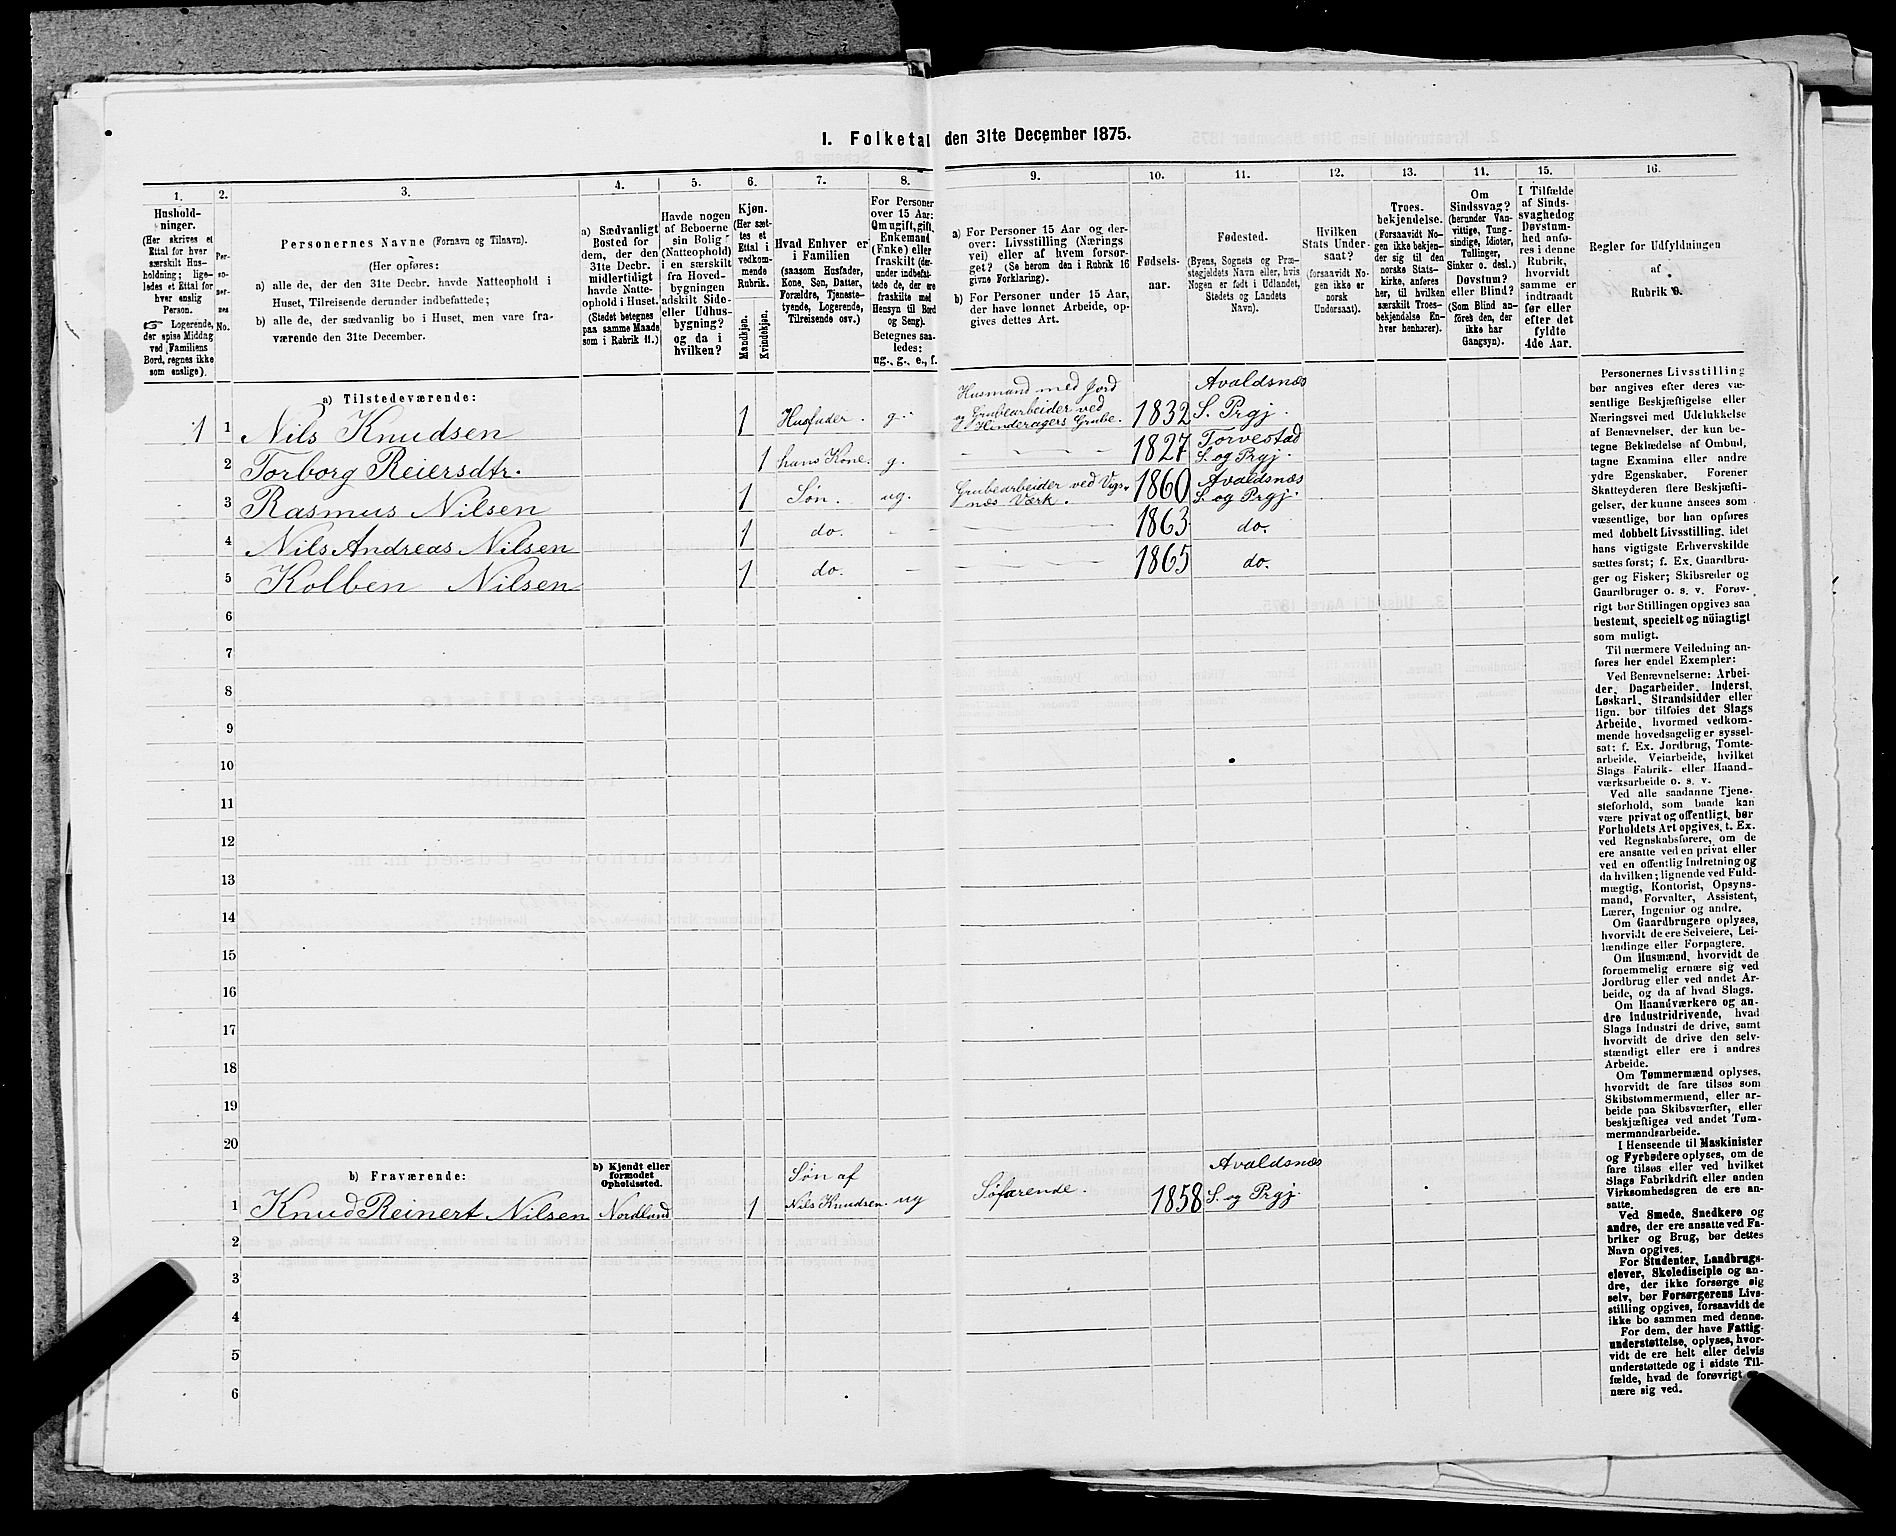 1. Folketal den 31te December 1875.
1. 2. 3. 4. 5. 6. 7. 8. 9. 10. 11. 12. 13. 11. 15. 16.
Hushold-
ninger.
(Her skrives et
Ettal for hver
særskilt Hus-
holdning; lige-
ledes et Ettal for
hver enslig
Person.
☞ Logerende,
der spise Middag
ved Familiens
Bord, regnes ikke
som enslige).
Per-
so-
ner-
nes
No.
Personernes Navne (Fornavn og Tilnavn).
(Her opføres:
a) alle de, der den 31te Decbr. havde Natteophold i
Huset, Tilreisende derunder indbefattede;
b) alle de, der sædvanlig bo i Huset, men vare fra-
værende den 31te December.
a) Sædvanligt
Bosted for
dem, der den
31te Decbr.
midlertidigt
havde Natte-
ophold i Huset.
(Stedet betegnes
paa samme Maade
som i Rubrik 11.)
Havde nogen
af Beboerne
sin Bolig
(Natteophold)
i en særskilt
fra Hoved-
bygningen
adskilt Side-
eller Udhus-
bygning?
og da i
hvilken?
Kjøn.
(Her sæt-
tes et
Ettal i
vedkom-
mende
Rubrik.
Mandkjøn.
Kvindekjøn.
Hvad Enhver er
i Familien
(saasom Husfader,
Kone, Søn, Datter,
Forældre, Tjeneste-
tyende, Logerende,
Tilreisende osv.)
For Personer
over 15 Aar:
Om ugift, gift,
Enkemand
(Enke) eller
fraskilt (der-
under indbefat-
tede de, der ere
fraskilte med
Hensyn til Bord
og Seng).
Betegnes saa-
ledes:
ug., g., e., f.
a) For Personer 15 Aar og der-
over: Livsstilling (Nærings
vei) eller af hvem forsør-
get? (Se herom den i Rubrik 16
givne Forklaring).
b) For Personer under 15 Aar,
der have lønnet Arbeide, op-
gives dettes Art.
Fødsels-
aar.
Fødested.
(Byens, Sognets og Præ-
stegjeldets Navn eller, hvis
Nogen er født i Udlandet,
Stedets og Landets
Navn).
Hvilken
Stats Under-
saat?
(forsaavidt No-
gen ikke er
norsk
Undersaat).
Troes-
bekjendelse.
(Forsaavidt No-
gen ikke bekjen-
der sig til den
norske Stats-
kirke, anføres
her, til hvilken
særskilt Troes-
bekjendelse En-
hver henhører).
Om
Sindssvag?
(herunder Van-
vittige, Tung-
sindige, Idioter,
Tullinger,
Sinker o. desl.)
Døvstum?
eller Blind?
(Som Blind an-
føres den, der
ikke har
Gangsyn).
I Tilfælde
af Sinds-
svaghed og
Døvstum-
hed anfø-
res i denne
Rubrik,
hvorvidt
samme er
indtraadt
før eller
efter det
fyldte
4de Aar.
Regler for Udfyldningen
af
Rubrik 9.
a) Tilstedeværende:
Husmand med Jord Avaldsnæs
1 1 Nils Knudsen 1 Husfader. g. og Grubearbeider ved Hinderagers Grube. 1832 S. Prgj.
2 Torborg Reiersdtr. 1 hans Kone. g. 1827 Torvestad S. og Prgj.
3 Rasmus Nilsen 1 Søn. ug. Grubearbeider ved Vigsnæs Værk. 1860 Avaldsnæs S. og Prgj.
4 Nils Andreas Nilsen 1 do. - 1863 do.
5 Kolben Nilsen 1 do. - 1865 do.
6
7
8
9
10
11
12
13
14
15
16
17
18
19
20
b) Fraværende:
b) Kjendt eller
formodet
Opholdssted.
1 Knud Reinert Nilsen Nordland 1 Søn af Nils Knudsen. ug Søfarende. 1858 Avaldsnæs S. og Prgj.
2
3
4
5
6
Personernes Livsstilling
bør angives efter deres væ-
sentlige Beskjæftigelse eller
Næringsvei med Udelukkelse
af Benævnelser, der kun be-
tegne Beklædelse af Ombud,
tagne Examina eller andre
ydre Egenskaber. Forener
Skatteyderen flere Beskjæfti-
gelser, der kunne ansees som
væsentlige, bør han opføres
med dobbelt Livsstilling, idet
hans vigtigste Erhvervskilde
sættes først; f. Ex. Gaardbru-
ger og Fisker; Skibsreder og
Gaardbruger o. s. v. Forøv-
rigt bør Stillingen opgives saa
bestemt, specielt og nöiagtigt
som muligt.
Til nærmere Veiledning an-
føres her endel Exempler:
Ved Benævnelserne: Arbei-
der, Dagarbeider, Inderst,
Løskarl, Strandsidder eller
lign. bør tilføies det Slags
Arbeide, hvormed vedkom-
mende hovedsagelig er syssel-
sat: f. Ex. Jordbrug, Tomte-
arbeide, Veiarbeide, hvilket
Slags Fabrik- eller Haand-
værksarbeide o. s. v.
Ved alle saadanne Tjene-
steforhold, som baade kan
være privat og offentligt, bør
Forholdets Art opgives, t. Ex.
ved Regnskabsførere, om de
ere ansatte ved en privat eller
ved en offentlig Indretning og
da hvilken; lignende ved Fuld-
mægtig, Kontorist, Opsyns-
mand, Forvalter, Assistent,
Lærer, Ingeniør og andre.
Om Gaardbrugere oplyses,
hvorvidt de ere Selveiere, Lei-
lændinge eller Forpagtere.
Om Husmænd, hvorvidt de
fornemmelig ernære sig ved
Jordbrug eller ved andet Ar-
beide, og da af hvad Slags.
Om Haandværkere og an-
dre Industridrivende, hvad
Slags Industri de drive, samt
hvorvidt de drive den selv-
stændigt eller ere i andres
Arbeide.
Om Tømmermænd oplyses,
hvorvidt de fare tilsøs som
Skibstømmermænd, eller ar-
beide paa Skibsværfter, eller
beskjæftiges ved andet Tøm-
mermandsarbeide.
I Henseende til Maskinister
og Fyrbødere oplyses, om de
fare tilsøs eller ved hvilket
Slags Fabrikdrift eller anden
Virksomhedsgren de ere an-
satte.
Ved Smede, Snedkere og
andre, der ere ansatte ved Fa-
briker og Brug, bør dettes
Navn opgives.
For Studenter, Landbrugs-
elever, Skoledisciple og an-
dre, der ikke forsørge sig
selv, bør Forsørgerens Livs-
stilling opgives, forsaavidt de
ikke bo sammen med denne.
For dem, der have Fattig-
understøttelse, oplyses, hvor-
vidt de ere helt eller delvis
understøttede og i sidste Til-
fælde, hvad de forøvrigt er-
nære sig ved.